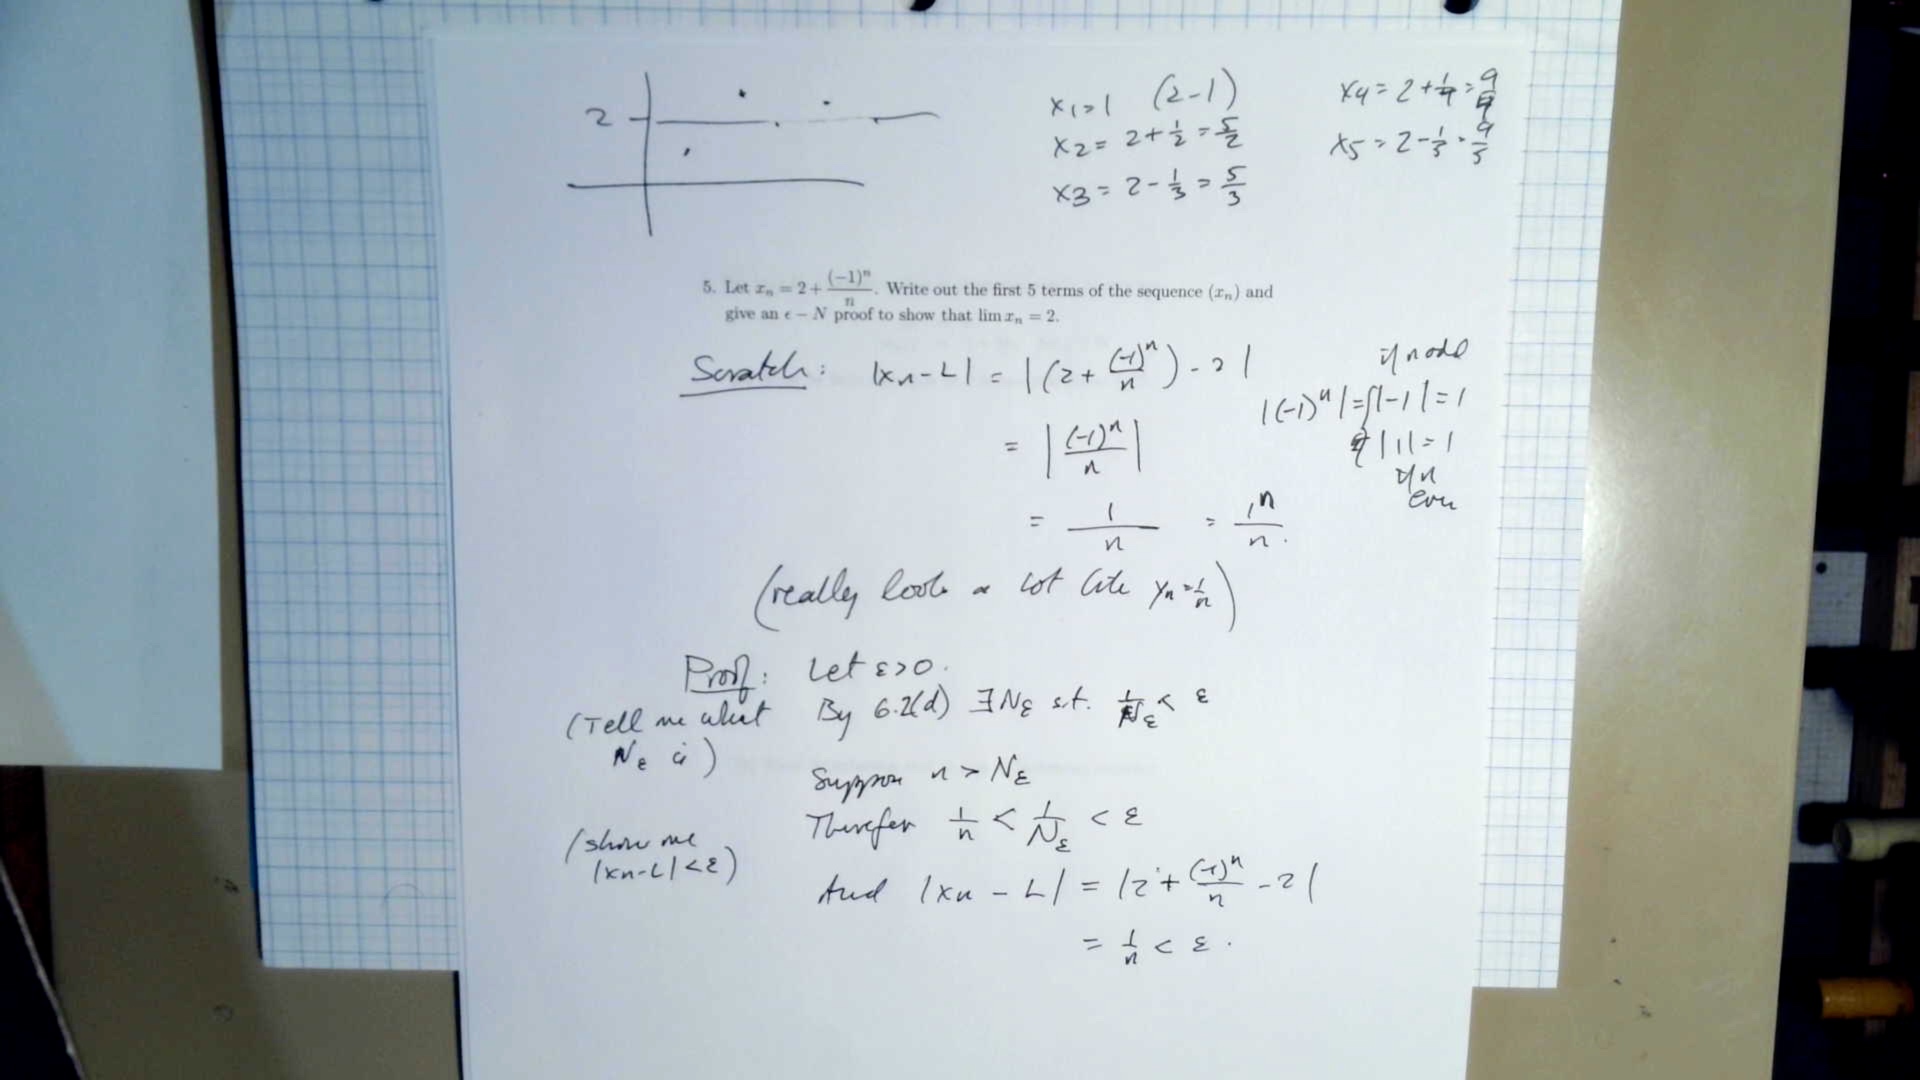 2
x₁ = 1 (2-1)
x₂ = 2 + 1/2 = 5/2
x₃ = 2 - 1/3 = 5/3
x₄ = 2 + 1/4 = 9/4
5. Let xₙ = 2 + (-1)ⁿ/n. Write out the first 5 terms of the sequence (xₙ) and
give an ϵ − N proof to show that lim xₙ = 2.
Scratch: |xₙ - L| = |(2 + (-1)ⁿ/n) - 2|
= |(-1)ⁿ/n|
= 1/n = 1ⁿ/n.
if n odd
|(-1)ⁿ| = { |-1| = 1
|1| = 1
if n
even
(really look a lot like yₙ = 1/n)
Proof: Let ε > 0.
(Tell me what
Nε is)
By 6.2(d) ∃Nε s.t. 1/Nε < ε
Suppose n > Nε
Therefore 1/n < 1/Nε < ε
(show me
|xₙ-L| < ε)
And |xₙ - L| = |2 + (-1)ⁿ/n - 2|
= 1/n < ε.